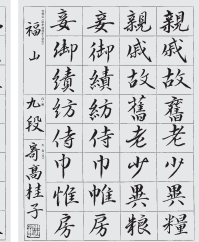 親戚故舊老少異糧
親戚故舊老少異粮
妾御績紡侍巾帷房
妾御績紡侍巾帷房
福山 九段 寄高桂子